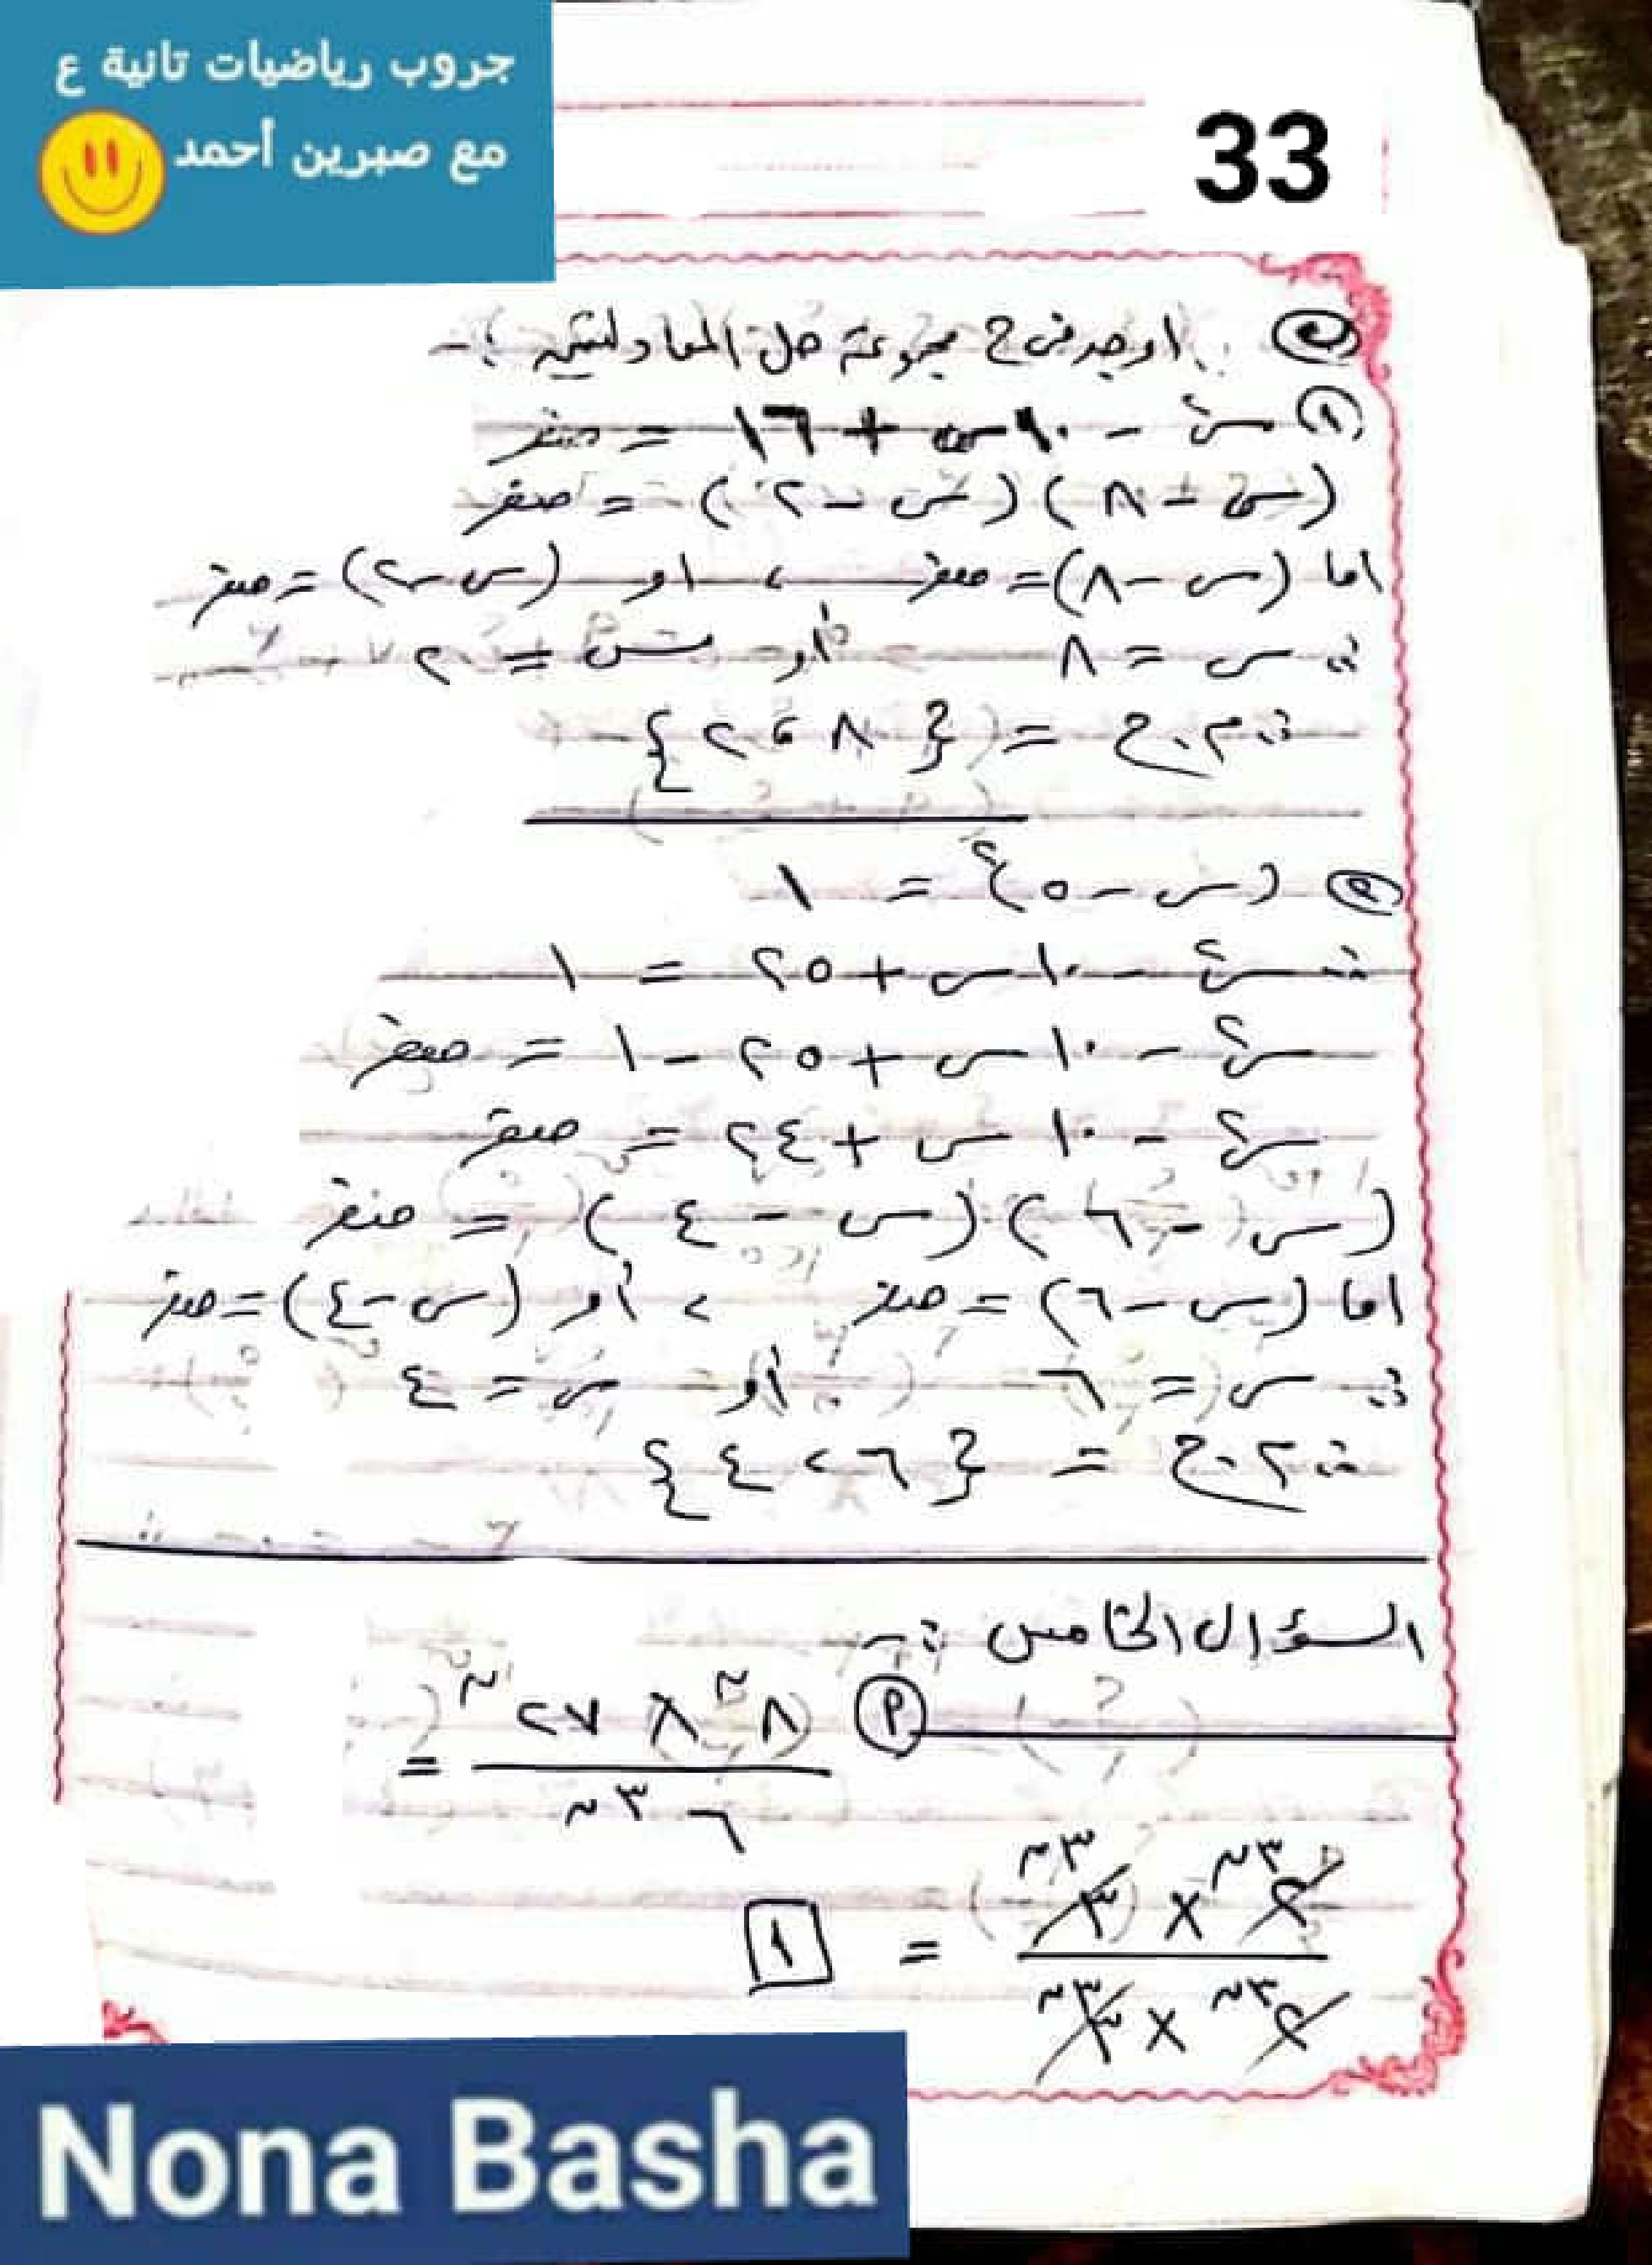 جروب رياضيات تانية ع
مع صبرين أحمد
33
ب اوجد فى ح مجموعة حل المعادلتين :-
١ س٢ - ١٠س + ١٦ = صفر
(س - ٨) (س - ٢) = صفر
اما (س - ٨) = صفر ، او (س - ٢) = صفر
∴ س = ٨ أو س = ٢
∴ م . ح = {٨ ، ٢}
٢ (س - ٥)٢ = ١
∴ س٢ - ١٠س + ٢٥ = ١
س٢ - ١٠س + ٢٥ - ١ = صفر
س٢ - ١٠س + ٢٤ = صفر
(س - ٦) (س - ٤) = صفر
اما (س - ٦) = صفر ، أو (س - ٤) = صفر
∴ س = ٦ أو س = ٤
∴ م . ح = {٦ ، ٤}
السؤال الخامس :-
أ ٨ن × ٢٧ن =
٦٣ن
٢٣ن × ٣٣ن
= ١
٢٣ن × ٣٣ن
Nona Basha